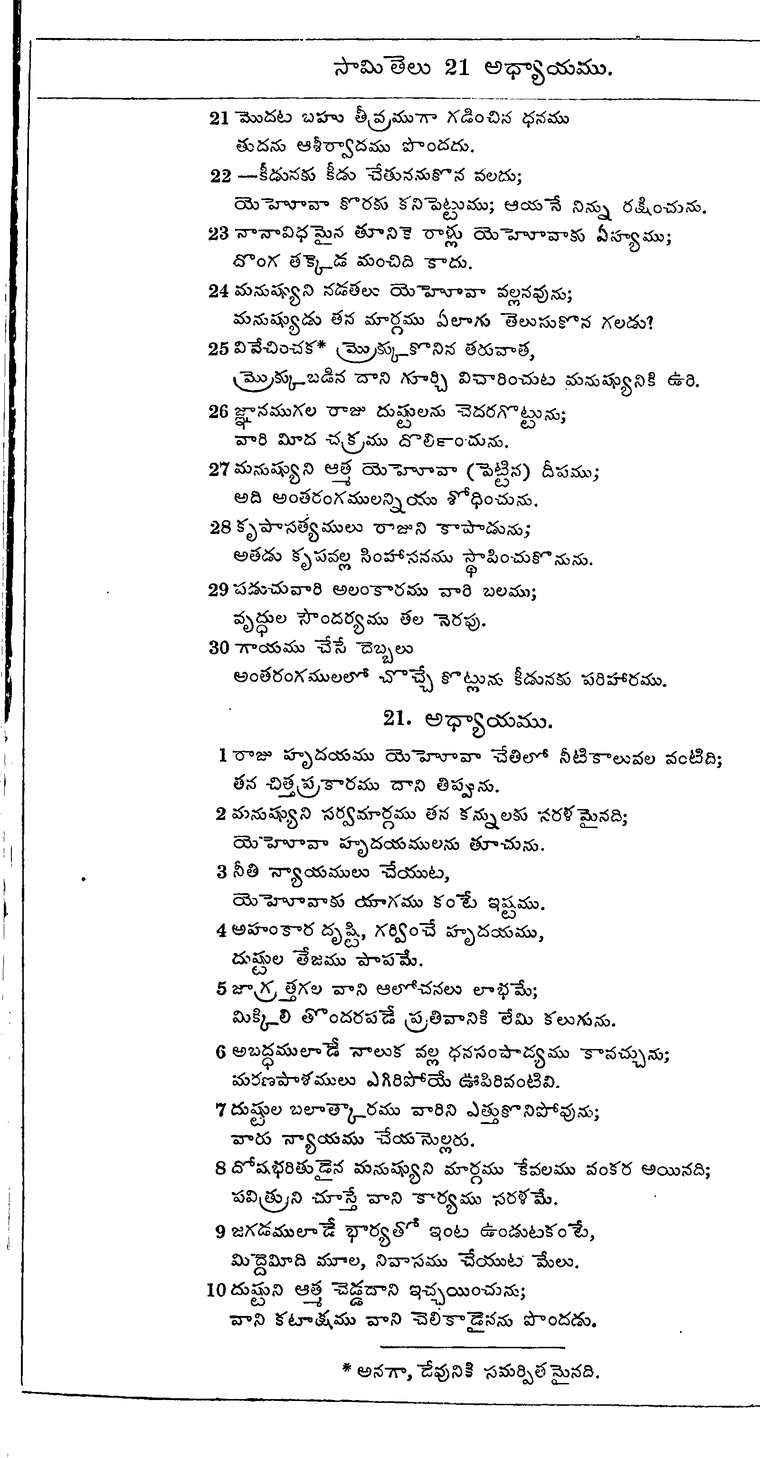 సామితెలు 21 అధ్యాయము.
21 మొదట బహు తీవ్రముగా గడించిన ధనము
తుదను ఆశీర్వాదము పొందదు.
22 —కీడునకు కీడు చేతుననుకొన వలదు;
యెహెూవా కొరకు కనిపెట్టుము; ఆయనే నిన్ను రక్షించును.
23 నానావిధమైన తూనికె రాళ్లు యెహెూవాకు ఏహ్యము;
దొంగ తక్కెడ మంచిది కాదు.
24 మనుష్యుని నడతలు యెహెూవా వల్లనవును;
మనుష్యుడు తన మార్గము ఏలాగు తెలుసుకొన గలడు?
25 వివేచించక* మ్రొక్కుకొనిన తరువాత,
మ్రొక్కుబడిన దాని గూర్చి విచారించుట మనుష్యునికి ఉరి.
26 జ్ఞానముగల రాజు దుష్టులను చెదరగొట్టును;
వారి మీద చక్రము దొలిఁంచును.
27 మనుష్యుని ఆత్మ యెహెూవా (పెట్టిన) దీపము;
అది అంతరంగములన్నియు శోధించును.
28 కృపాసత్యములు రాజుని కాపాడును;
అతడు కృపవల్ల సింహాసనము స్థాపించుకొనును.
29 పడుచువారి అలంకారము వారి బలము;
వృద్ధుల సౌందర్యము తల నెరపు.
30 గాయము చేసే దెబ్బలు
అంతరంగములలో చొచ్చే కొట్లును కీడునకు పరిహారము.
21. అధ్యాయము.
1 రాజు హృదయము యెహెూవా చేతిలో నీటికాలువల వంటిది;
తన చిత్తప్రకారము దాని తిప్పును.
2 మనుష్యుని సర్వమార్గము తన కన్నులకు సరళమైనది;
యెహెూవా హృదయములను తూచును.
3 నీతి న్యాయములు చేయుట,
యెహెూవాకు యాగము కంటే ఇష్టము.
4 అహంకార దృష్టి, గర్వించే హృదయము,
దుష్టుల తేజము పాపమే.
5 జాగ్రత్తగల వాని ఆలోచనలు లాభమే;
మిక్కిలి తొందరపడే ప్రతివానికి లేమి కలుగును.
6 అబద్ధములాడే నాలుక వల్ల ధనసంపాద్యము కానచ్చును;
మరణపాశములు ఎగిరిపోయే ఊపిరివంటివి.
7 దుష్టుల బలాత్కారము వారిని ఎత్తుకొనిపోవును;
వారు న్యాయము చేయనొల్లరు.
8 దోషభరితుడైన మనుష్యుని మార్గము కేవలము వంకర అయినది;
పవిత్రుని చూస్తే వాని కార్యము సరళమే.
9 జగడములాడే భార్యతో ఇంట ఉండుటకంటే,
మిద్దెమీది మూల, నివాసము చేయుట మేలు.
10 దుష్టుని ఆత్మ చెడ్డదాని ఇచ్ఛయించును;
వాని కటాక్షము వాని చెలికాడైనను పొందడు.
* అనగా, దేవునికి సమర్పితమైనది.